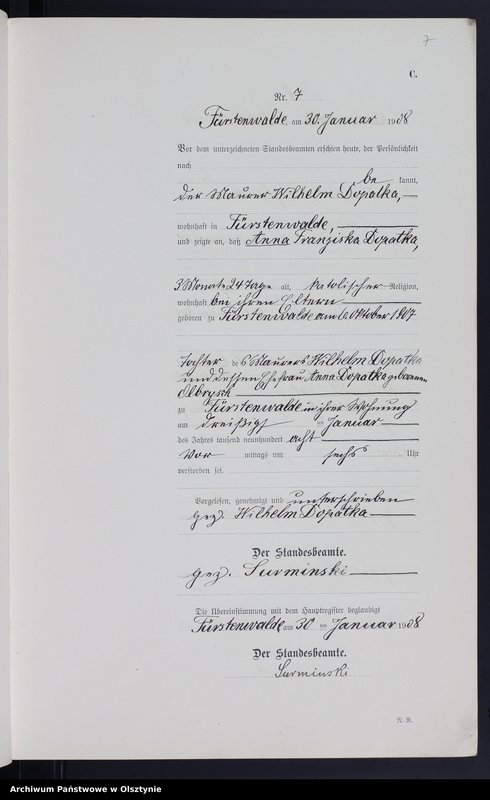 7
C.
Nr. 7
Fürstenwalde am 30. Januar 1908
Vor dem unterzeichneten Standesbeamten erschien heute, der Persönlichkeit
nach be kannt,
der Maurer Wilhelm Dopatka,
wohnhaft in Fürstenwalde,
und zeigte an, daß Anna Franziska Dopatka,
3 Monate 24 Tage alt, katolischer Religion,
wohnhaft bei ihren Eltern
geboren zu Fürstenwalde am 6 Oktober 1907
Tochter des Maurers Wilhelm Dopatka
und dessen Ehefrau Anna Dopatka geborenen
Olbrysch
zu Fürstenwalde in ihrer Wohnung
am dreißigst en Januar
des Jahres tausend neunhundert acht
Vor mittags um sechs Uhr
verstorben sei.
Vorgelesen, genehmigt und unterschrieben
gez. Wilhelm Dopatka
Der Standesbeamte.
gez. Surminski
Die Übereinstimmung mit dem Hauptregister beglaubigt
Fürstenwalde am 30 ten Januar 1908
Der Standesbeamte.
Surminski
N. R.
Archiwum Państwowe w Olsztynie